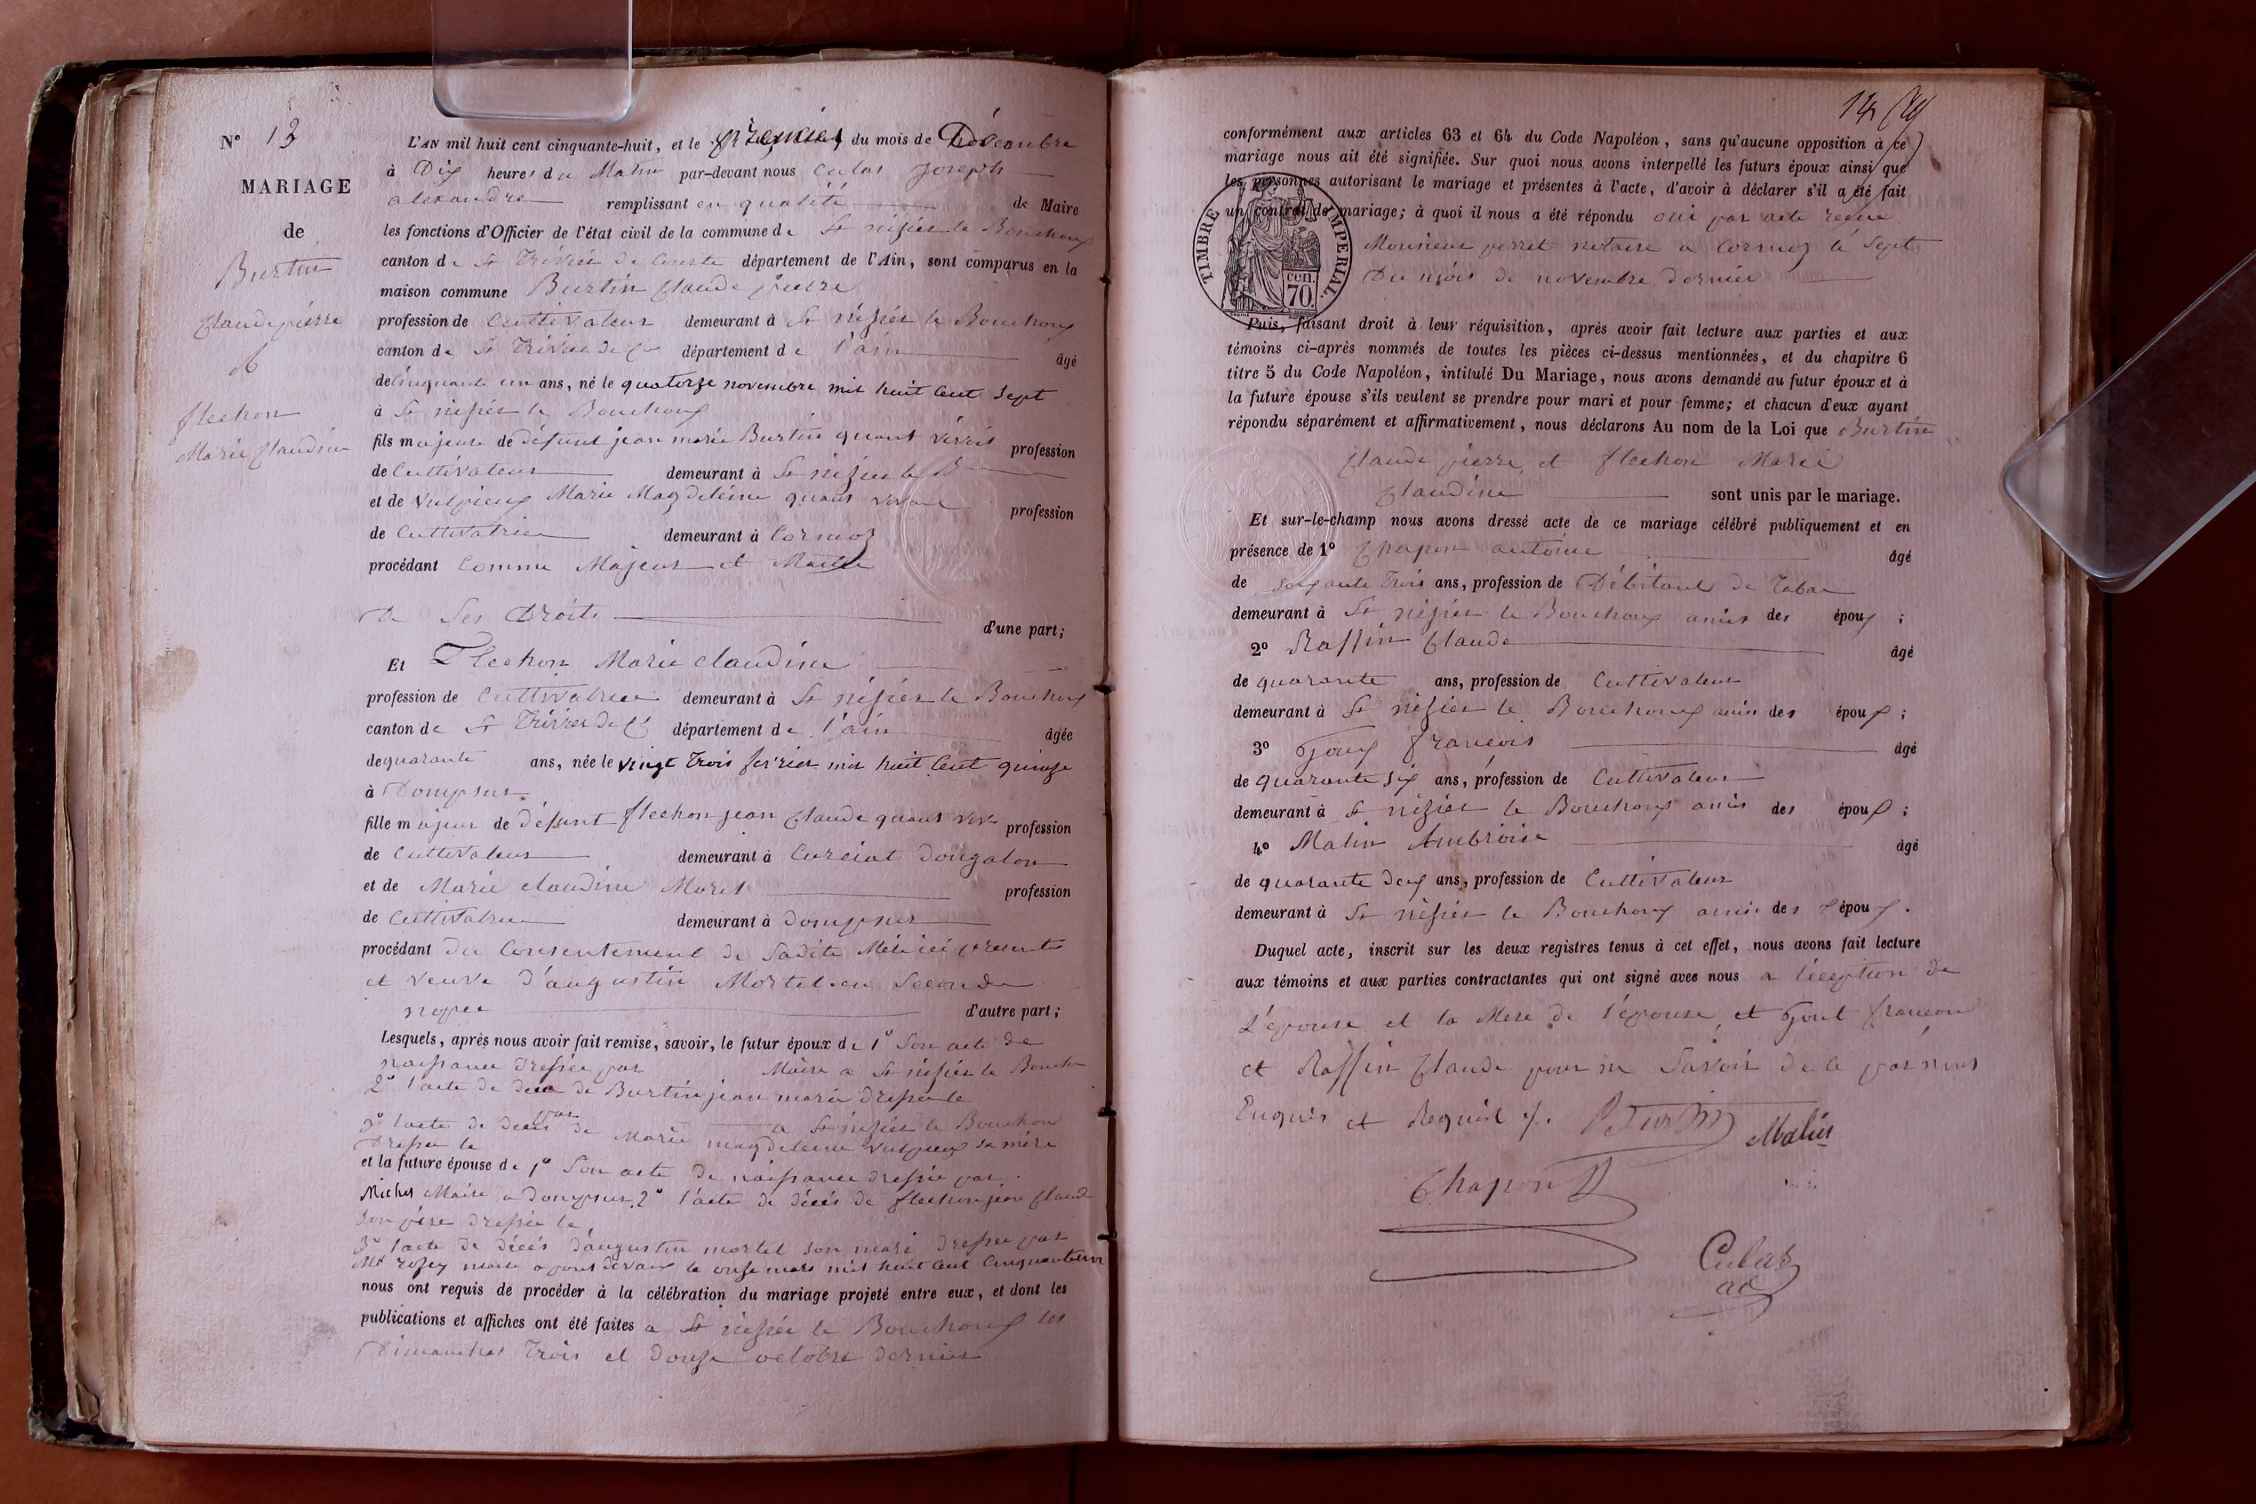 N° 13
MARIAGE
de
Burtin
Claude pierre
&
flechon
Marie Claudine
L'AN mil huit cent cinquante-huit, et le premier du mois de Décembre
à Dix heures du Matin par-devant nous Culas Joseph
alexandre remplissant en qualité de Maire
les fonctions d'Officier de l'état civil de la commune de St nizier le Bouchoux
canton de St Trivier de Courte département de l'Ain, sont comparus en la
maison commune Burtin Claude pierre
profession de Cultivateur demeurant à St nizier le Bouchoux
canton de St Trivier de C département de l'ain âgé
de Cinquante un ans, né le quatorze novembre mil huit Cent Sept
à St nizier le Bouchoux
fils majeur de défunt jean marie Burtin quant vivait profession
de Cultivateur demeurant à St nizier le B
et de Vulpieux Marie Magdeleine quant vivant profession
de Cultivatrice demeurant à Cormoz
procédant Comme Majeur et Maitre
de Ses Droits d'une part;
Et Flechon Marie claudine
profession de Cultivatrice demeurant à St nizier le Bouchoux
canton de St Trivier de C département de l'ain âgée
de quarante ans, née le vingt Trois fevrier mil huit Cent quinze
à Dompsure
fille majeur de défunt flechon jean Claude quant viv profession
de Cultivateur demeurant à Curciat dongalon
et de Marie claudine Morel profession
de Cultivatrice demeurant à dompsure
procédant du Consentement de Sadite Mère ici présente
et veuve d'augustin Mortel en Seconde
nopce d'autre part;
Lesquels, après nous avoir fait remise, savoir, le futur époux de 1° Son acte de
naissance dressée par Maire a St nizier le Bouch
2° l'acte de décé de Burtin jean marie dressée le
par a St nizier le Bouchou
3° l'acte de décés de Marie magdeleine Vulpieux sa mère
Dressée le
et la future épouse de 1° Son acte de naissance dressée par
Michel Maire a dompsure 2° l'acte de décés de flechon jean Claude
Son père dressée le
3° l'acte de décés d'augustin mortel son mari dressée par
Mr rosey maire a pont devaux le onze mars mil huit Cent Cinquante
nous ont requis de procéder à la célébration du mariage projeté entre eux, et dont les
publications et affiches ont été faites a St nizier le Bouchoux les
Dimanches Trois et douze octobre dernier
14
conformément aux articles 63 et 64 du Code Napoléon, sans qu'aucune opposition à ce
mariage nous ait été signifiée. Sur quoi nous avons interpellé les futurs époux ainsi que
les personnes autorisant le mariage et présentes à l'acte, d'avoir à déclarer s'il a été fait
un contrat de mariage; à quoi il nous a été répondu oui par acte reçue
Monsieur perret notaire a Cormoz le Sept
Du mois de novembre dernier
TIMBRE IMPERIAL.
cen. 70.
Puis, faisant droit à leur réquisition, après avoir fait lecture aux parties et aux
témoins ci-après nommés de toutes les pièces ci-dessus mentionnées, et du chapitre 6
titre 5 du Code Napoléon, intitulé Du Mariage, nous avons demandé au futur époux et à
la future épouse s'ils veulent se prendre pour mari et pour femme; et chacun d'eux ayant
répondu séparément et affirmativement, nous déclarons Au nom de la Loi que Burtin
Claude pierre et flechon Marie
Claudine sont unis par le mariage.
Et sur-le-champ nous avons dressé acte de ce mariage célébré publiquement et en
présence de 1° Chapon antoine âgé
de Soixante Trois ans, profession de Débitant de Tabac
demeurant à St nizier le Bouchoux amis des époux ;
2° Raffin Claude âgé
de quarante ans, profession de Cultivateur
demeurant à St nizier le Bouchoux amis des époux ;
3° Goux françois âgé
de quarante Six ans, profession de Cultivateur
demeurant à St nizier le Bouchoux amis des époux ;
4° Malin Ambroise âgé
de quarante deux ans, profession de Cultivateur
demeurant à St nizier le Bouchoux amis des époux.
Duquel acte, inscrit sur les deux registres tenus à cet effet, nous avons fait lecture
aux témoins et aux parties contractantes qui ont signé avec nous a l'éception de
L'épouse et la Mere de l'épouse et françois
et Raffin Claude pour ne Savoir de ce par nous
Enquis et Requis
Burtin Malin
Chapon
Culas
ad